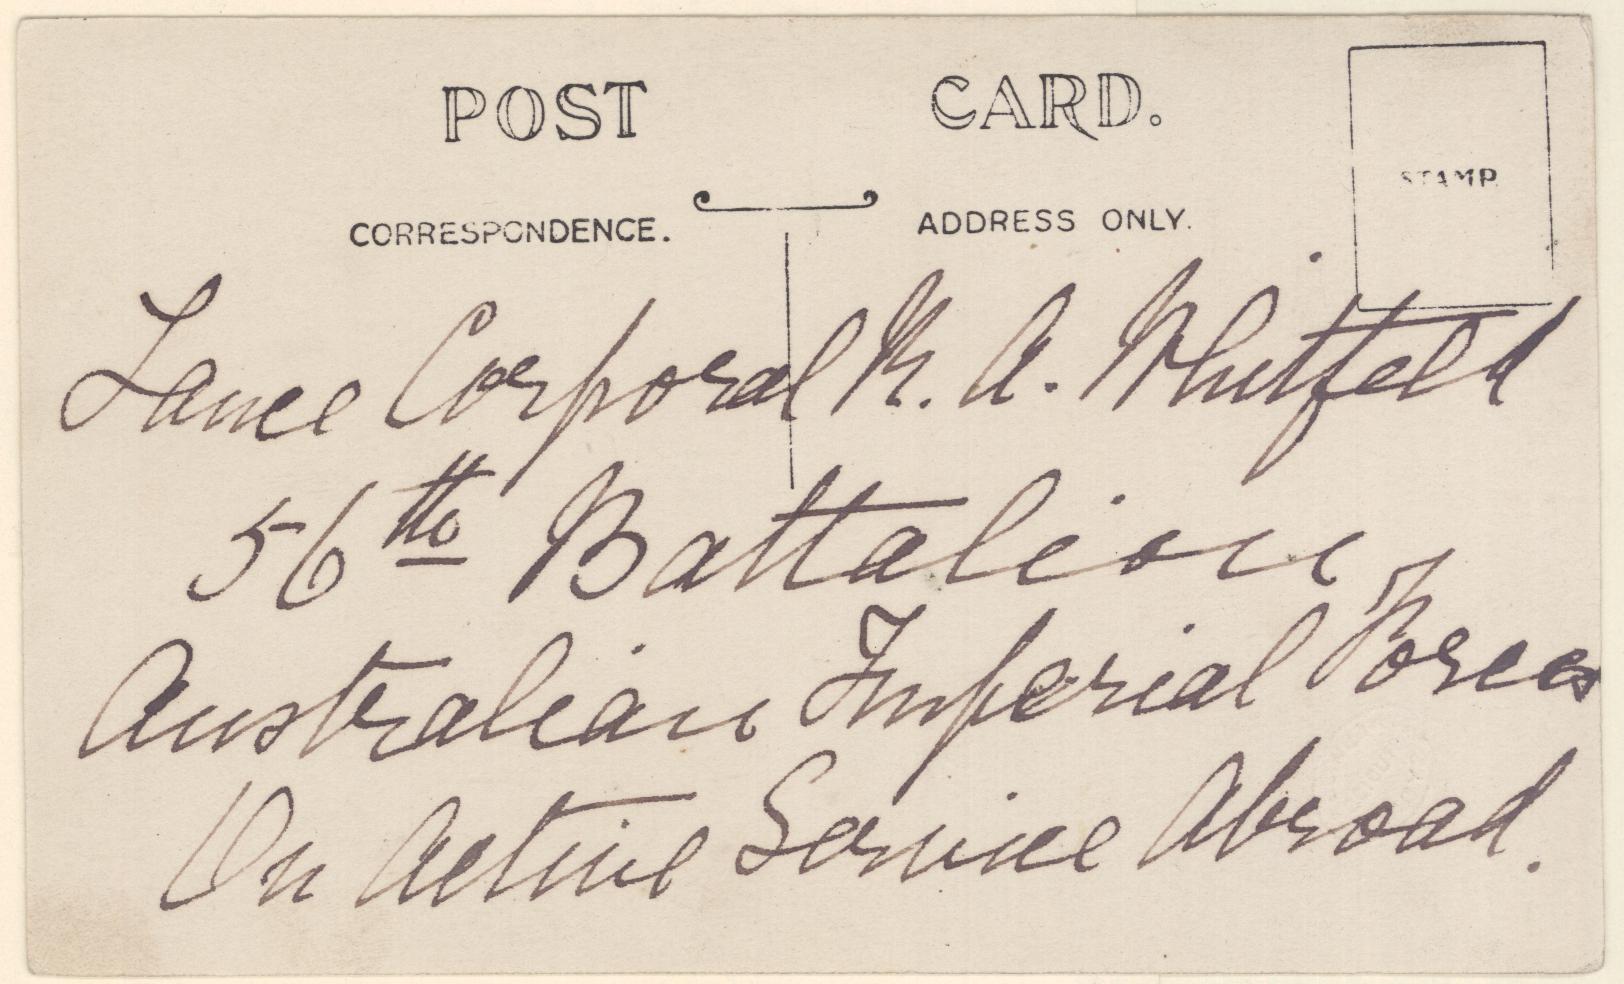 POST CARD.
STAMP
CORRESPONDENCE. ADDRESS ONLY.
Lance Corporal A. Whitfeld
56th Battalion
Australian Imperial Forces
On Active Service Abroad.